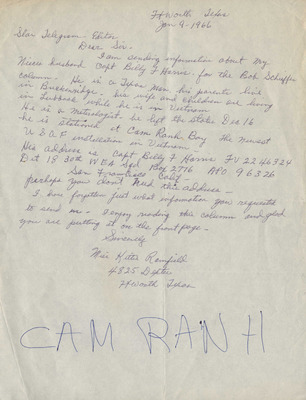 Ft Worth Texas
Jan 9 - 1966
Star Telegram Editor
Dear Sir.
I am sending information about my
Niece husband Capt Billy F Harris. for the Bob Schieffer
column. He is a Texas Man his parents live
in Breckenridge - his wife and children are living
in Lubbock while he is in Vietnam
He is a Metrologist. he left the states Dec 16
he is stationed at Cam Ranh Bay the newest
U S A F instillation in Vietnam.
His address is Capt Billy F Harris FV 2246324
Det 18 30th WEA Sqd. Box 2716 APO 96326
San Francisco Calif -
perhaps you don't need this address -
I have forgotten just what information you requested
to send me. I enjoy reading this column and glad
you are putting it on the front page -
Sincerely
Miss Kittie
4825 Dexter
Ft Worth Texas
CAM RANH